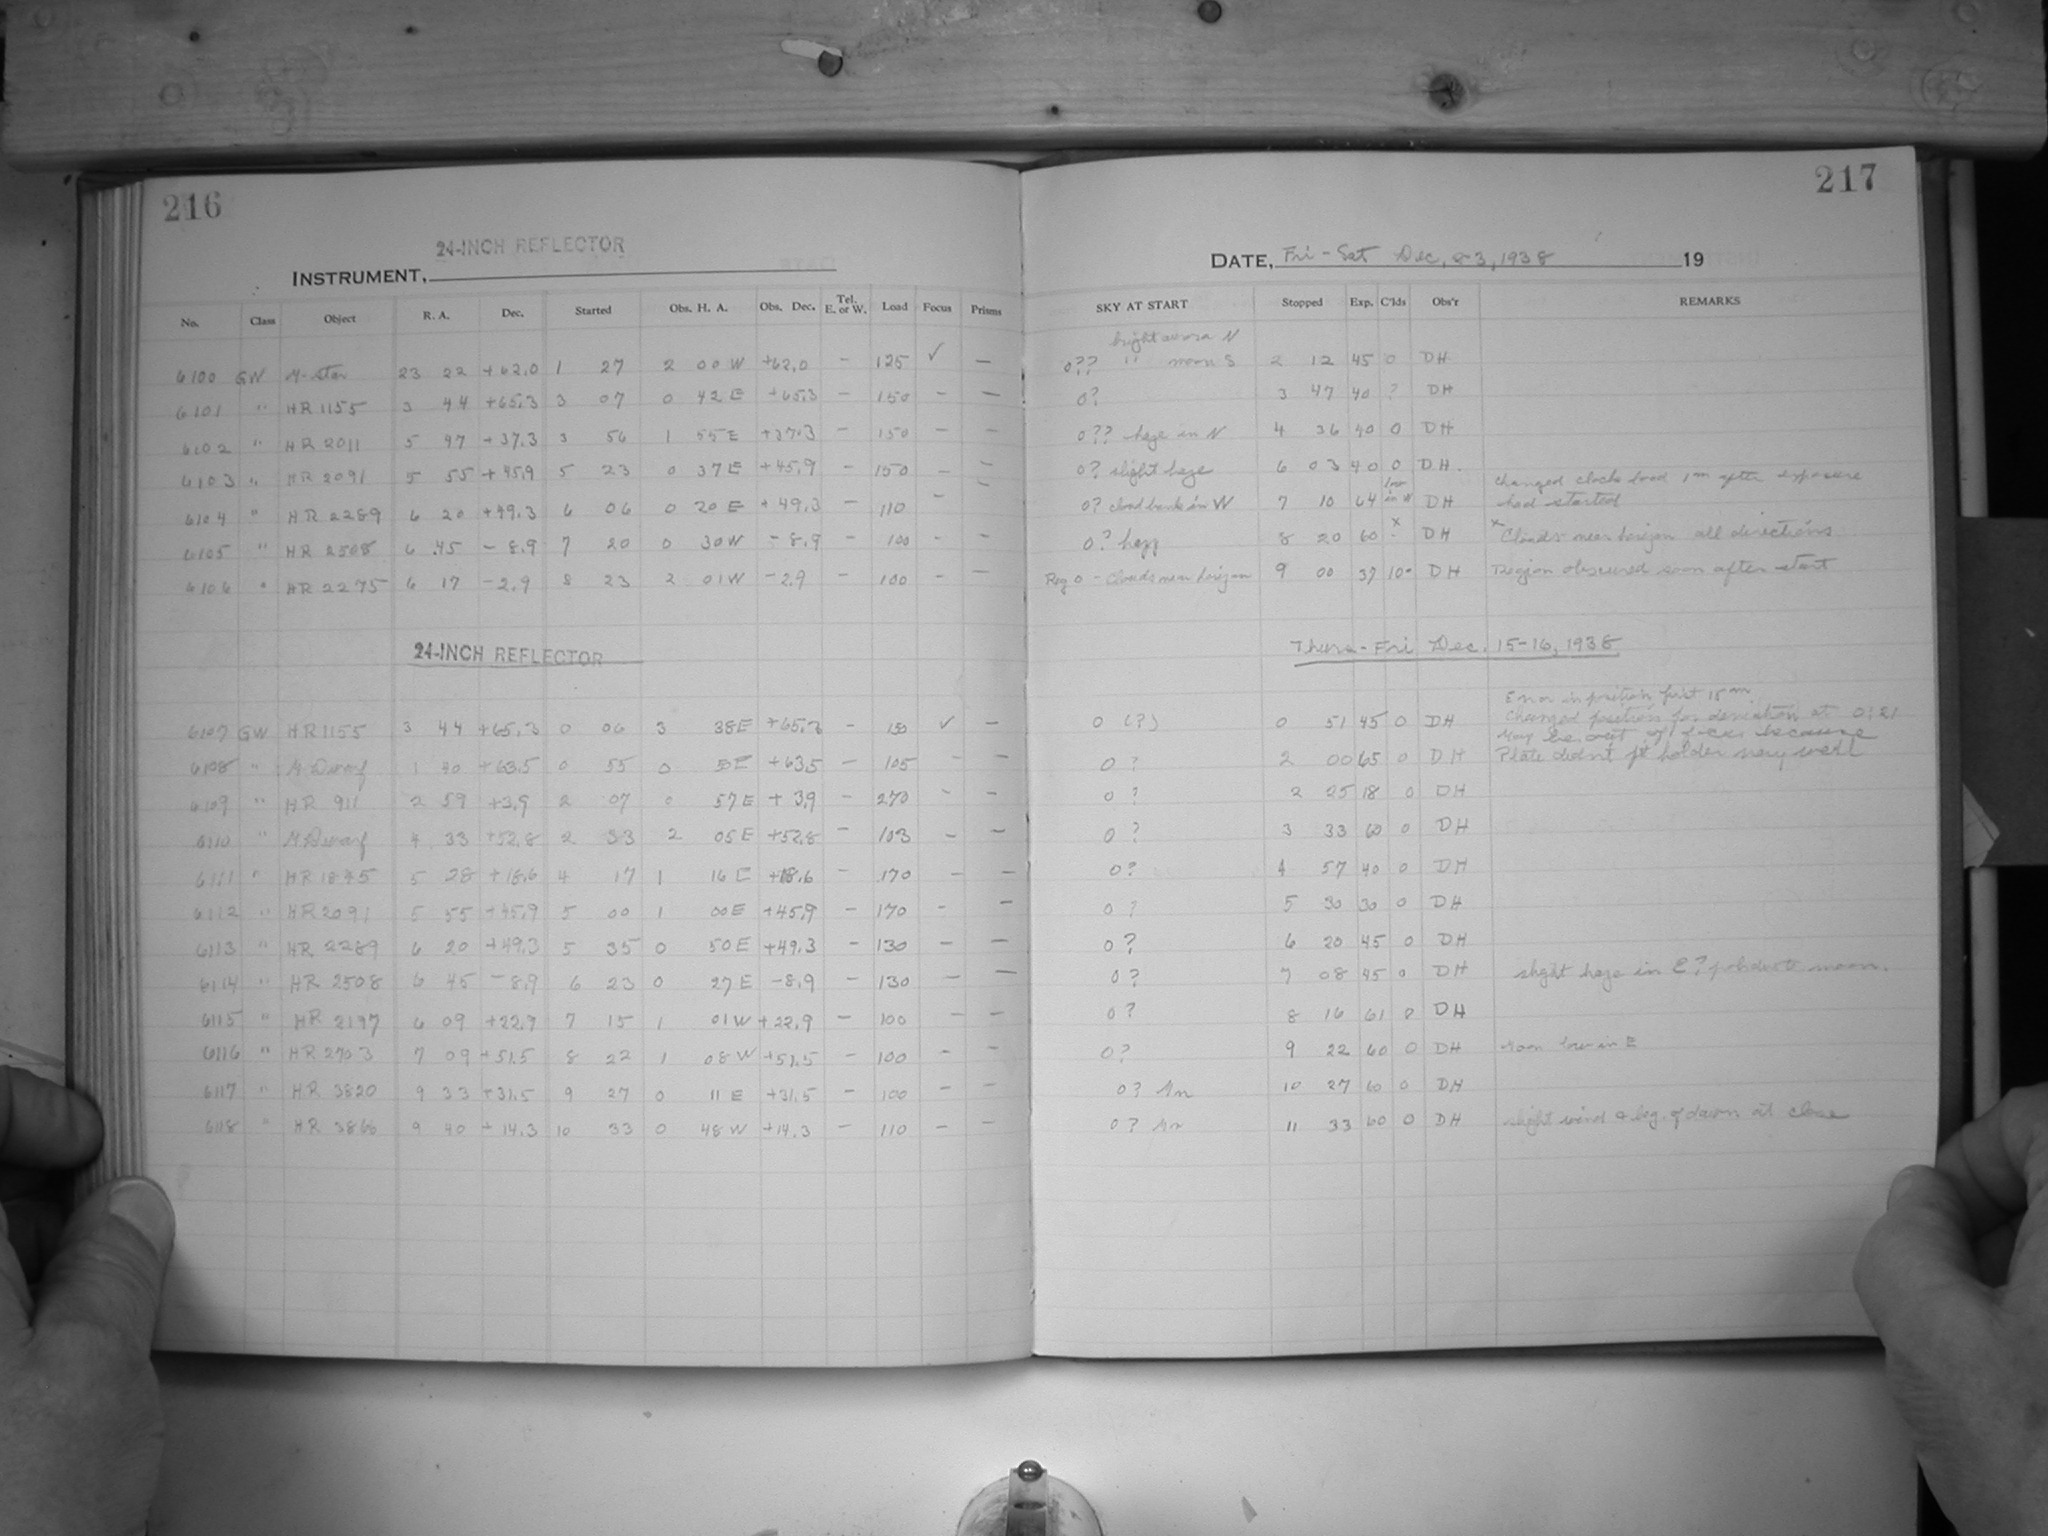 216
24-INCH REFLECTOR
INSTRUMENT,
No. Class Object R. A. Dec. Started Obs. H. A. Obs. Dec. Tel. E. or W. Load Focus Prisms
6100 GW M-star 23 22 +62.0 1 27 2 00 W +62.0 - 125 ✓ -
6101 " HR 1155 3 44 +65.3 3 07 0 42 E +65.3 - 150 - -
6102 " HR 2011 5 47 +37.3 3 56 1 55 E +37.3 - 150 - -
6103 " HR 2091 5 55 +45.9 5 23 0 37 E +45.9 - 150 - -
6104 " HR 2289 6 20 +49.3 6 06 0 20 E +49.3 - 110 - -
6105 " HR 2508 6 45 -8.9 7 20 0 30 W -8.9 - 100 - -
6106 " HR 2275 6 17 -2.9 8 23 2 01 W -2.9 - 100 - -
24-INCH REFLECTOR
6107 GW HR 1155 3 44 +65.3 0 06 3 38 E +65.3 - 150 ✓ -
6108 " M Dwarf 1 40 +63.5 0 55 0 E +63.5 - 105 - -
6109 " HR 911 2 59 +3.9 2 07 0 57 E +3.9 - 270 - -
6110 " M Dwarf 4 33 +52.8 2 33 2 05 E +52.8 - 103 - -
6111 " HR 1845 5 28 +18.6 4 17 1 16 E +18.6 - 170 - -
6112 " HR 2091 5 55 +45.9 5 00 1 00 E +45.9 - 170 - -
6113 " HR 2289 6 20 +49.3 5 35 0 50 E +49.3 - 130 - -
6114 " HR 2508 6 45 -8.9 6 23 0 27 E -8.9 - 130 - -
6115 " HR 2197 6 09 +22.9 7 15 1 01 W +22.9 - 100 - -
6116 " HR 2703 7 09 +51.5 8 22 1 08 W +51.5 - 100 - -
6117 " HR 3820 9 33 +31.5 9 27 0 11 E +31.5 - 100 - -
6118 " HR 3866 9 40 +14.3 10 33 0 48 W +14.3 - 110 - -
217
DATE, Fri - Sat Dec, 2-3, 1938 19
SKY AT START Stopped Exp. C'lds Obs'r REMARKS
bright aurora N
0?? " moon S 2 12 45 0 DH
0? 3 47 40 ? DH
0?? haze in N 4 36 40 0 DH
0? slight haze 6 03 40 0 DH.
changed clocks load 1m after exposure
0? cloud bank in W 7 10 64 low in W DH had started
0? hazy 8 20 60 x DH x Clouds near horizon all directions
Reg 0 - Clouds near horizon 9 00 37 10- DH Region obscured soon after start
Thurs - Fri Dec. 15-16, 1938
Error in position first 15m
Changed position for deviation at 0:21
0 (?) 0 51 45 0 DH
May be out of focus because
0? 2 00 65 0 DH Plate didn't fit holder very well
0? 2 25 18 0 DH
0? 3 33 60 0 DH
0? 4 57 40 0 DH
0? 5 30 30 0 DH
0? 6 20 45 0 DH
0? 7 08 45 0 DH slight haze in E? moon.
0? 8 16 61 0 DH
0? 9 22 60 0 DH Moon low in E
0? Mn 10 27 60 0 DH
0? Mn 11 33 60 0 DH slight wind & beg. of dawn at close